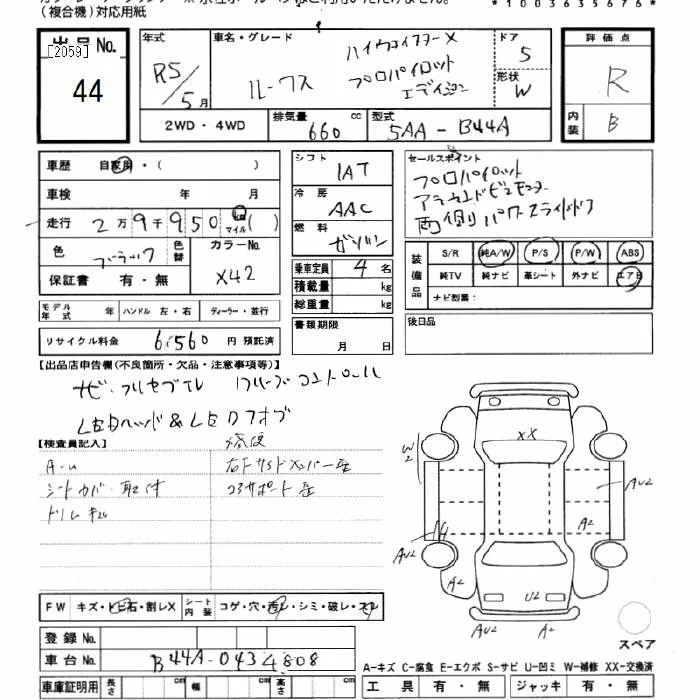 (複合機)対応用紙
*1003635676*
出品No.
[2059]
44
年式
R5/5月
車名・グレード
ルークス
ハイウェイスターX
プロパイロット
エディション
ドア
5
形状
W
評価点
R
内装
B
2WD・4WD
排気量
660 cc
型式
5AA-B44A
車歴 自家用・( )
車検 年 月
走行 2万9千950 km マイル( )
色 ブラック 色替 カラーNo. X42
保証書 有・無
モデル年式 年 ハンドル 左・右 ディーラー・並行
リサイクル料金 6,560 円 預託済
シフト
IAT
冷房
AAC
燃料
ガソリン
乗車定員 4 名
積載量 kg
総重量 kg
書類期限
月 日
セールスポイント
プロパイロット
アラウンドビューモニター
両側パワースライドドア
装備品
S/R 純A/W P/S P/W ABS
純TV 純ナビ 革シート 外ナビ エアB
ナビ型番:
後日品
【出品店申告欄(不良箇所・欠品・注意事項等)】
LEDヘッド&LEDフォグ
【検査員記入】
修復
シートカバー取付
コアサポート
FW キズ・トビ石・割レX シート内装 コゲ・穴・汚レ・シミ・破レ・スレ
登録No.
車台No. B44A-0434808
車庫証明用 長さ cm 幅 cm 高さ cm
W2
XX
AU2
AU2
A2
A2
U2
AU2
A2
スペア
A-キズ C-腐食 E-エクボ S-サビ U-凹ミ W-補修 XX-交換済
工具 有・無 ジャッキ 有・無